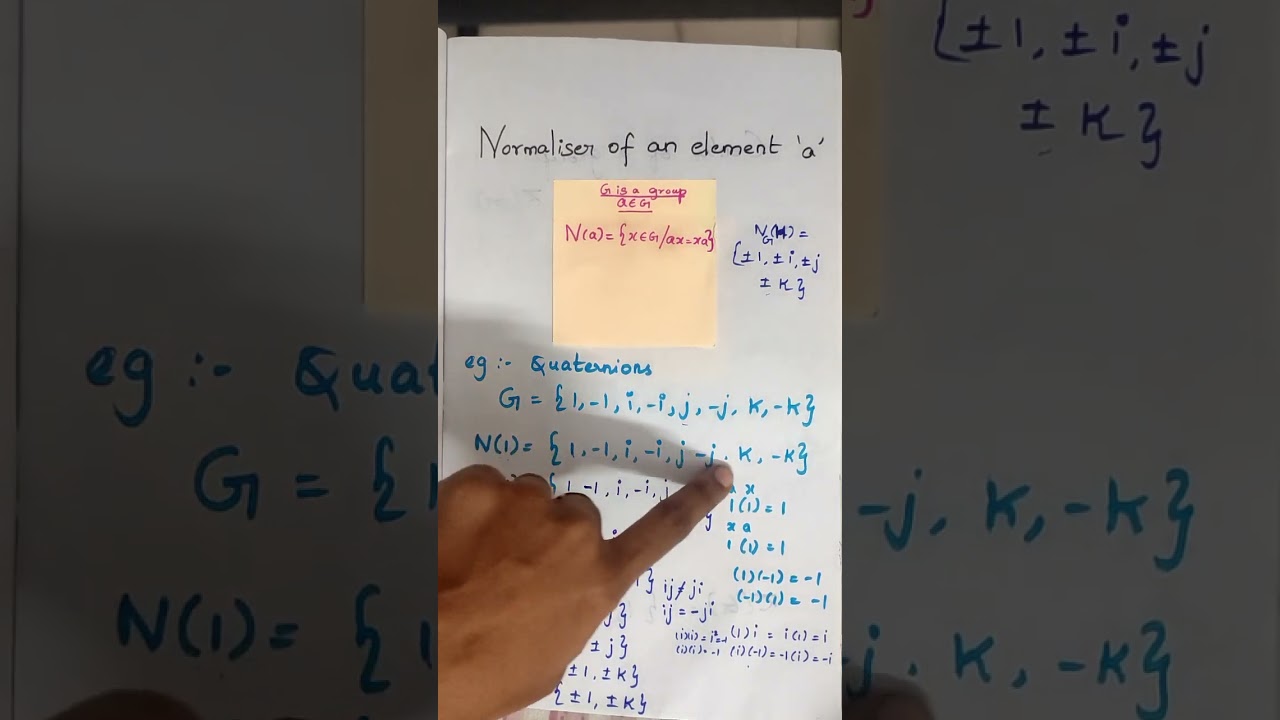 Normaliser of an element 'a'
G is a group
a∈G
N(a)={x∈G/ax=xa}
N_G(H)=
{±1,±i,±j
±K}
eg:- Quaternions
G = {1,-1,i,-i,j,-j,K,-K}
N(1)= {1,-1,i,-i,j -j, K, -K}
{1 -1,i,-i,j
a x
1(1)=1
x a
1(1)=1
(1)(-1)=-1
(-1)(1)=-1
ij≠ji
ij=-ji
(i)(i)=i²=-1
(i)(i)=-1
(1)i = i(1)=i
(i)(-1)=-1(i)=-i
j}
±j}
±1,±K}
{±1,±K}